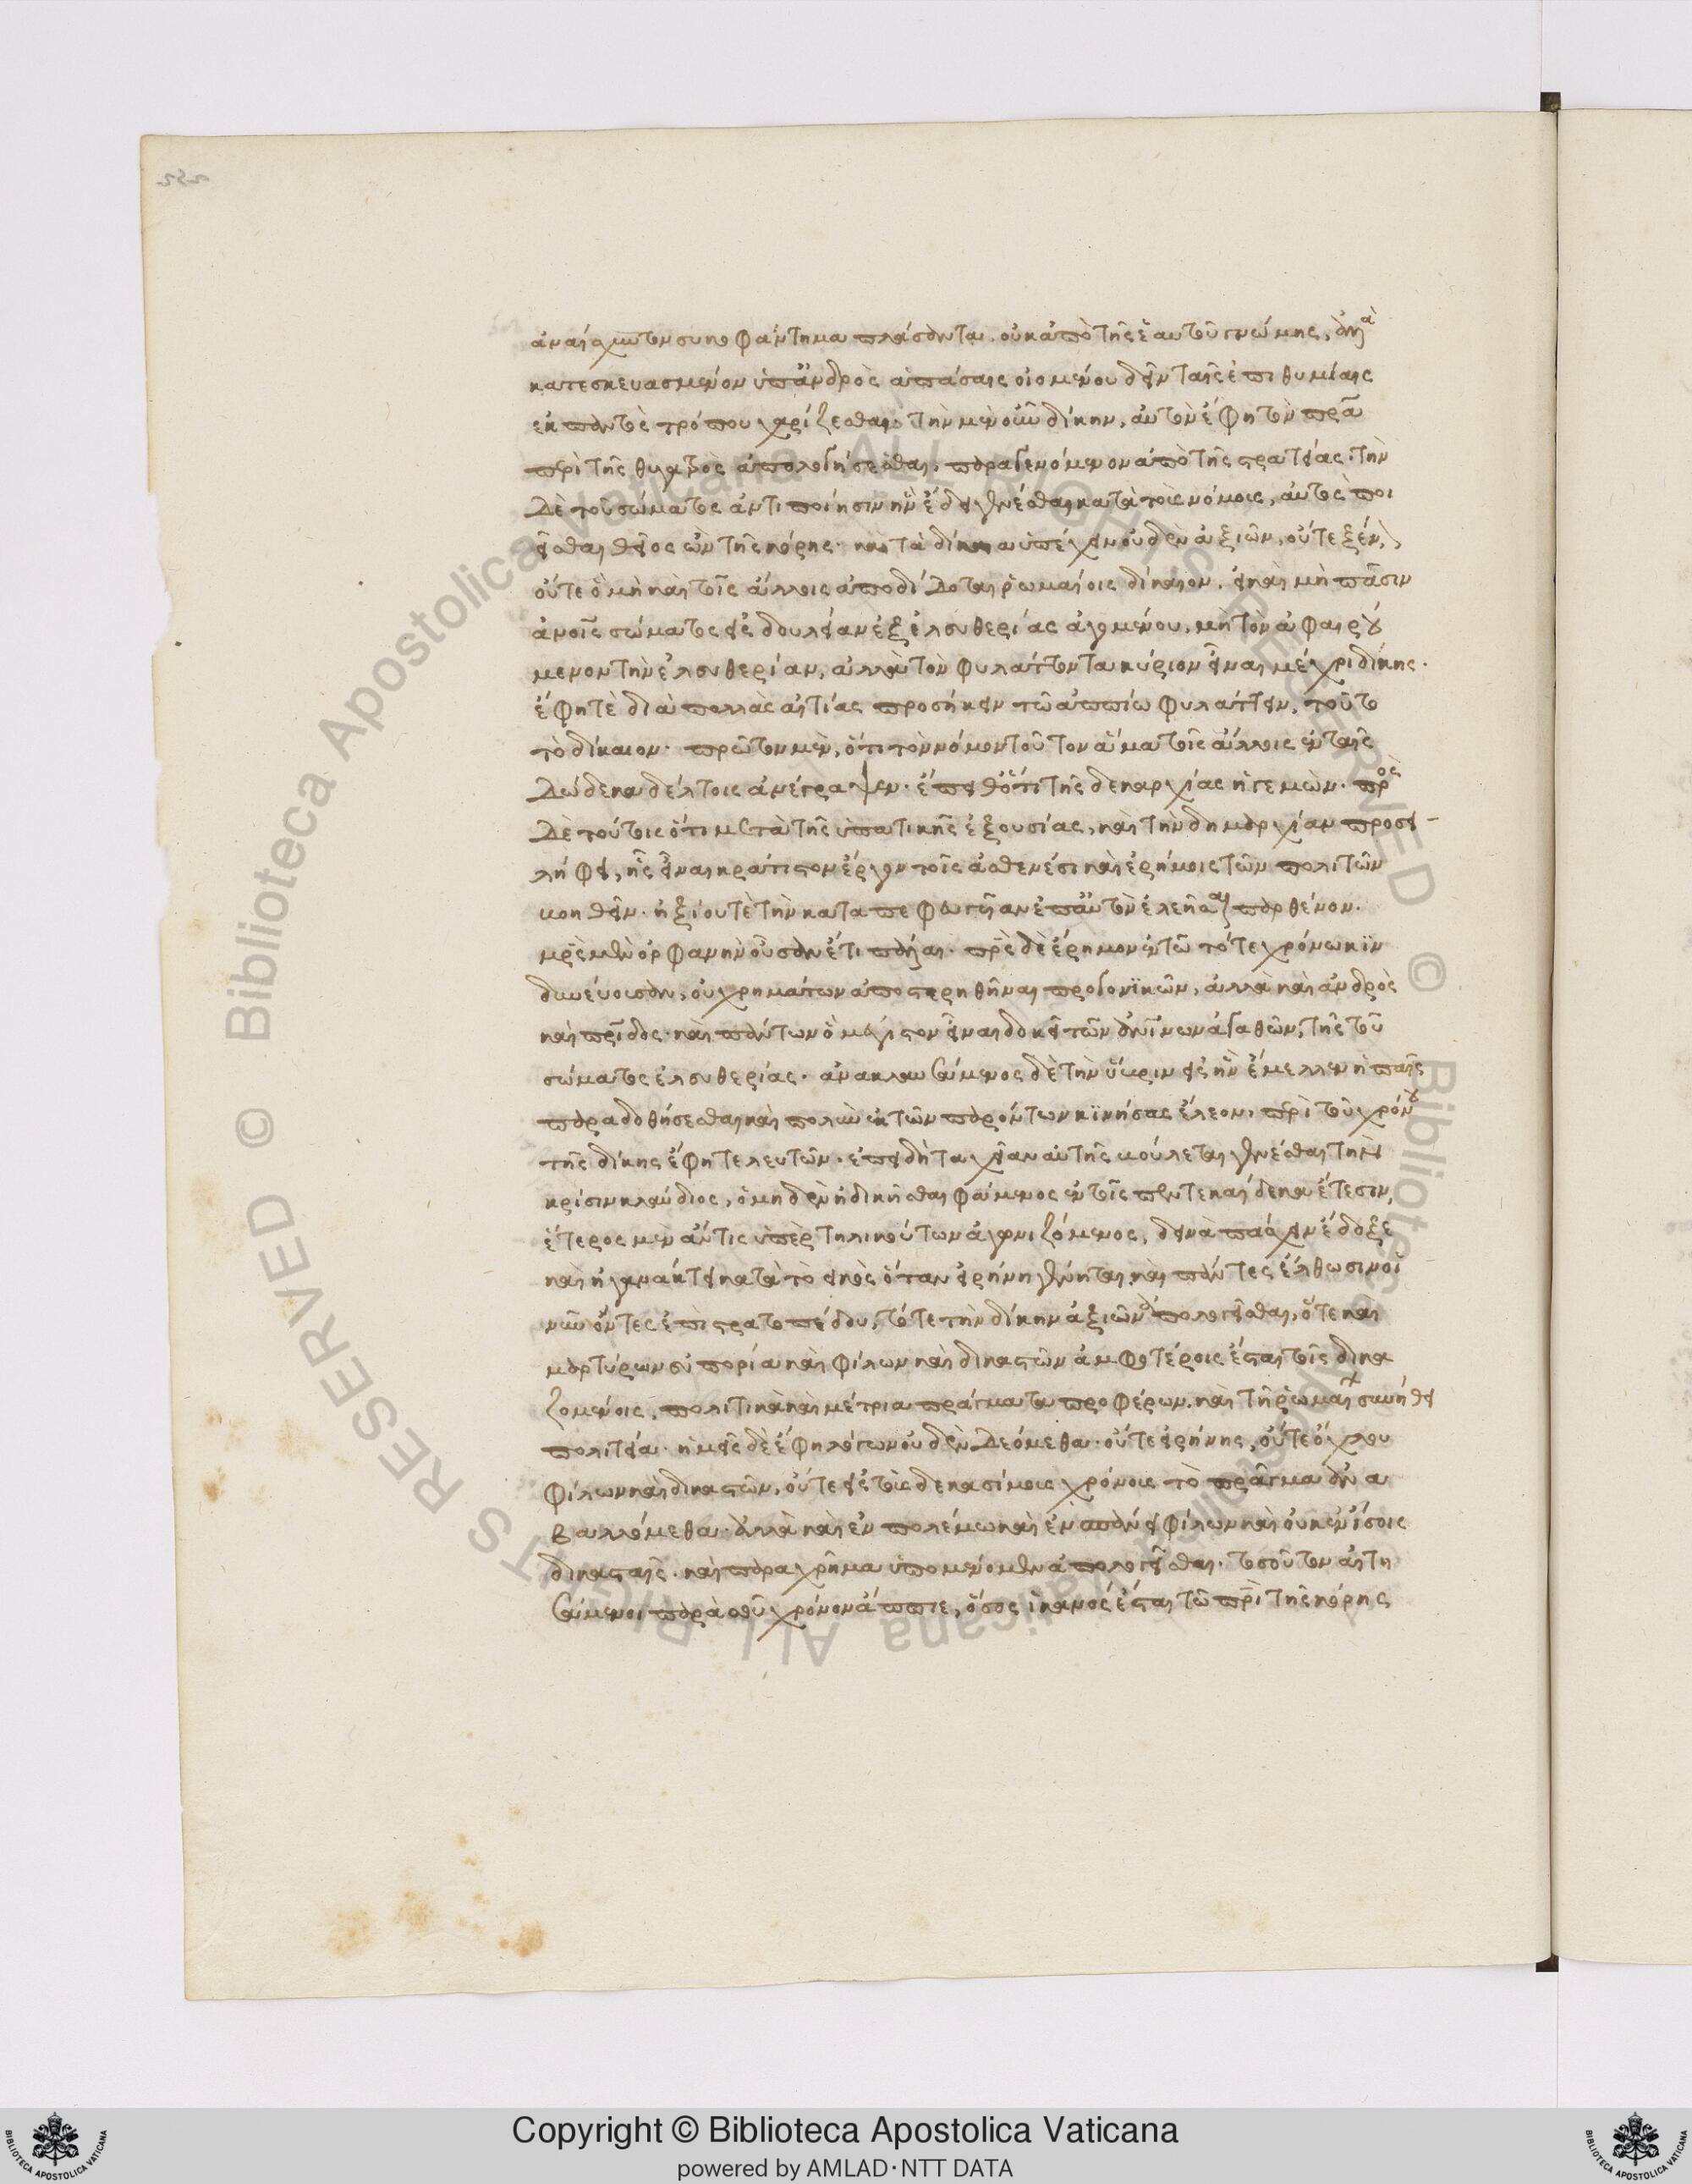 ἀναίσχυντον συκοφάντημα πλάσοντα. οὐκ ἀπὸ τῆς ἑαυτοῦ γνώμης, ἀλλὰ
κατεσκευασμένον ὑπ' ἀνδρὸς ἁπάσαις οἰομένου δεῖν ταῖς ἐπιθυμίαις
ἐκ παντὸς τρόπου χαρίζεσθαι. τὴν μὲν οὖν δίκην, αὐτὸν ἔφη τὸν πρα
περὶ τῆς θυγατρὸς ἀπολογήσεσθαι, παραγενόμενον ἀπὸ τῆς στρατείας. τὴν
δὲ τοῦ σώματος ἀντιποίησιν ἣν ἔδει γενέσθαι κατὰ τοὺς νόμους, αὐτὸς ποι
εῖσθαι θεῖος ὢν τῆς κόρης. καὶ τὰ δίκαια ὑπέχειν οὐδὲν ἀξιῶν, οὔτε ξένον
οὔτε ὃ μὴ καὶ τοῖς ἄλλοις ἀποδίδοται ῥωμαίοις δίκαιον. εἰ καὶ μὴ πᾶσιν
ἀνοῖς σώματος εἰς δουλείαν ἐξ ἐλευθερίας ἀγομένου, μὴ τὸν ἀφαιρού
μενον τὴν ἐλευθερίαν, ἀλλὰ τὸν φυλάττοντα κύριον εἶναι μέχρι δίκης.
ἔφη τὲ διὰ πολλὰς αἰτίας προσήκειν τῶ ἀππίω φυλάττειν, τοῦτο
τὸ δίκαιον. πρῶτον μὲν, ὅτι τὸν νόμον τοῦτον ἅμα τοῖς ἄλλοις ἐν ταῖς
δώδεκα δέλτοις ἀνέγραψεν. ἔπειθ' ὅτι τῆς δεκαρχίας ἡγεμὼν. πρὸς
δὲ τούτοις ὅτι μετὰ τῆς ὑπατικῆς ἐξουσίας, καὶ τὴν δημαρχίαν προσει-
λήφει, ἧς εἶναι κράτιστον ἔργον τοῖς ἀσθενέσι καὶ ἐρήμοις τῶν πολιτῶν
βοηθεῖν. ἠξίου τὲ τὴν καταπεφευγῖαν ἐπ' αὐτὸν ἐλεῆσαι παρθένον.
μρὸς μὲν ὀρφανὴν οὖσαν ἔτι πάλαι. πρὸς δὲ ἔρημον ἐν τῶ τότε χρόνω κϊν
δυνεύουσαν, οὐ χρημάτων ἀποστερηθῆναι προγονϊκῶν, ἀλλὰ καὶ ἀνδρὸς
καὶ πρίδος. καὶ πάντων ὃ μέγιστον εἶναι δοκεῖ τῶν ἀνίνων ἀγαθῶν, τῆς τοῦ
σώματος ἐλευθερίας. ἀνακλαυσάμενος δὲ τὴν ὕβριν εἰς ἣν ἔμελλεν ἡ παῖς
παραδοθήσεσθαι καὶ πολὺν ἐκ τῶν παρόντων κϊνήσας ἔλεον, περὶ τοῦ χρόνου
τῆς δίκης ἔφη τελευτῶν. ἐπειδὴ ταχεῖαν αὐτῆς βούλεται γενέσθαι τὴν
κρίσιν κλαύδιος, ὁ μηδὲν ἠδικῆσθαι φάμενος ἐν τοῖς πεντεκαίδεκα ἔτεσιν,
ἕτερος μὲν ἄν τις ὑπὲρ τηλικούτων ἀγωνιζόμενος, δεινὰ πάσχειν ἔδοξε
καὶ ἠγανάκτει κατὰ τὸ εἰκὸς ὅταν εἰρήνη γένηται καὶ πάντες ἔλθωσιν οἱ
νῦν ὄντες ἐπὶ στρατοπέδου, τότε τὴν δίκην ἀξιῶν ἀπολογεῖσθαι, ὅτε καὶ
μαρτύρων εὐπορία καὶ φίλων καὶ δικαστῶν ἀμφοτέροις ἔσται τοῖς δικα
ζομένοις, πολιτικὰ καὶ μέτρια πράγματα προφέρων. καὶ τῆ ῥωμαίων συνήθει
πολιτεία. ἡμεῖς δὲ ἔφη λόγων οὐδὲν δεόμεθα. οὔτε εἰρήνης, οὔτε ὄχλου
φίλων καὶ δικαστῶν, οὔτε εἰς τοὺς δικασίμους χρόνους τὸ πρᾶγμα ἀνα
βαλλόμεθα. ἀλλὰ καὶ ἐν πολέμω καὶ ἐν σπάνει φίλων καὶ οὐκ ἐν ἴσοις
δικασταῖς. καὶ παραχρῆμα ὑπομένομεν ἀπολογεῖσθαι. τοσοῦτον αἰτη
σάμενοι παρὰ σοῦ χρόνον ἄππιε, ὅσος ἱκανός ἔσται τῶ πρὶ τῆς κόρης